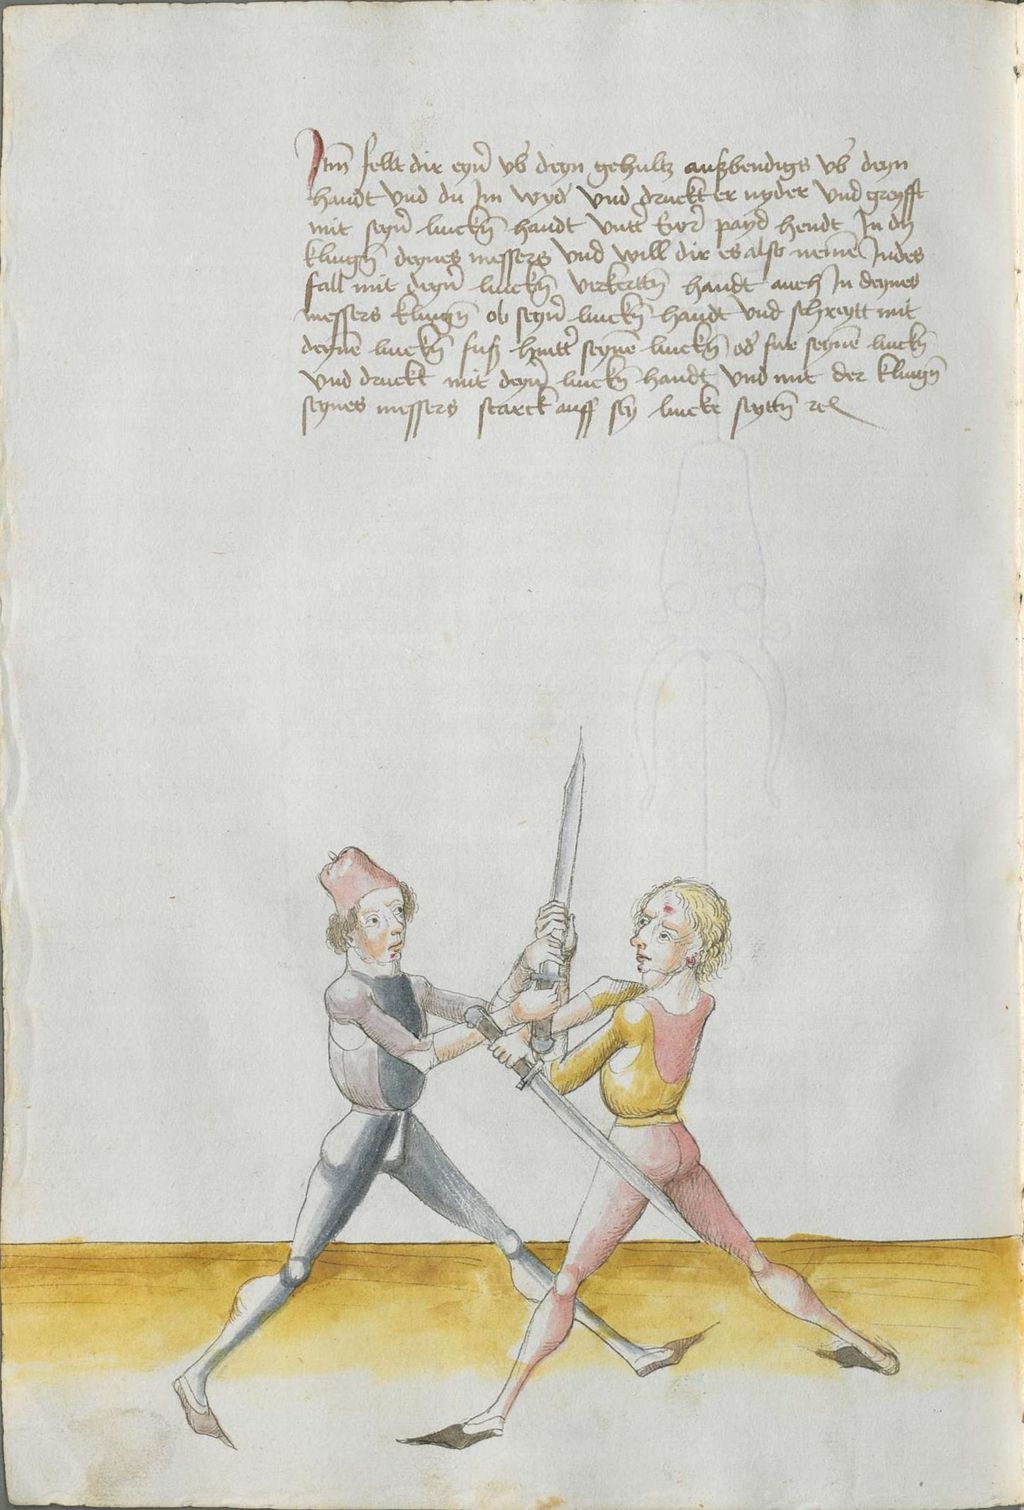 Itm̄ fellt dir eyn̄ vb̄ deyn gehultz außbendigs vb̄ deyn
handt vnd du Im wyd̄ vnd druckt er nyder vnd greyfft
mit seyn̄ linckn̄ handt vntt̄ payd̄ hendt In dy
klingn̄ deynes messers vnd will dir es also nemen̄ Indes
fall mit deyn̄ linckn̄ vrkertn̄ handt auch In deynes
messers klingn̄ ob seyn̄ linckn̄ handt vnd schreytt mit
deynē linckn̄ fuß hintt̄ seynē linckn̄ od̄ fur seynē linckn̄
vnd druckt mit deyn̄ linckn̄ handt vnd mit der klingn̄
seynes messers starck auff sey lincke seyttn̄ rc